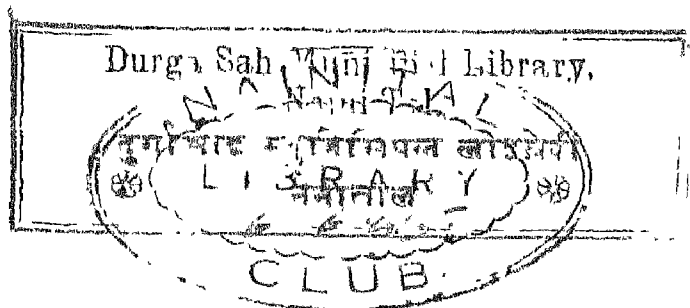 Durga Sah Municipal Library,
NAINITAL
Naini Tal
दुर्गासाह म्युनिसिपल लाइब्रेरी
LIBRARY
नैनीताल
CLUB